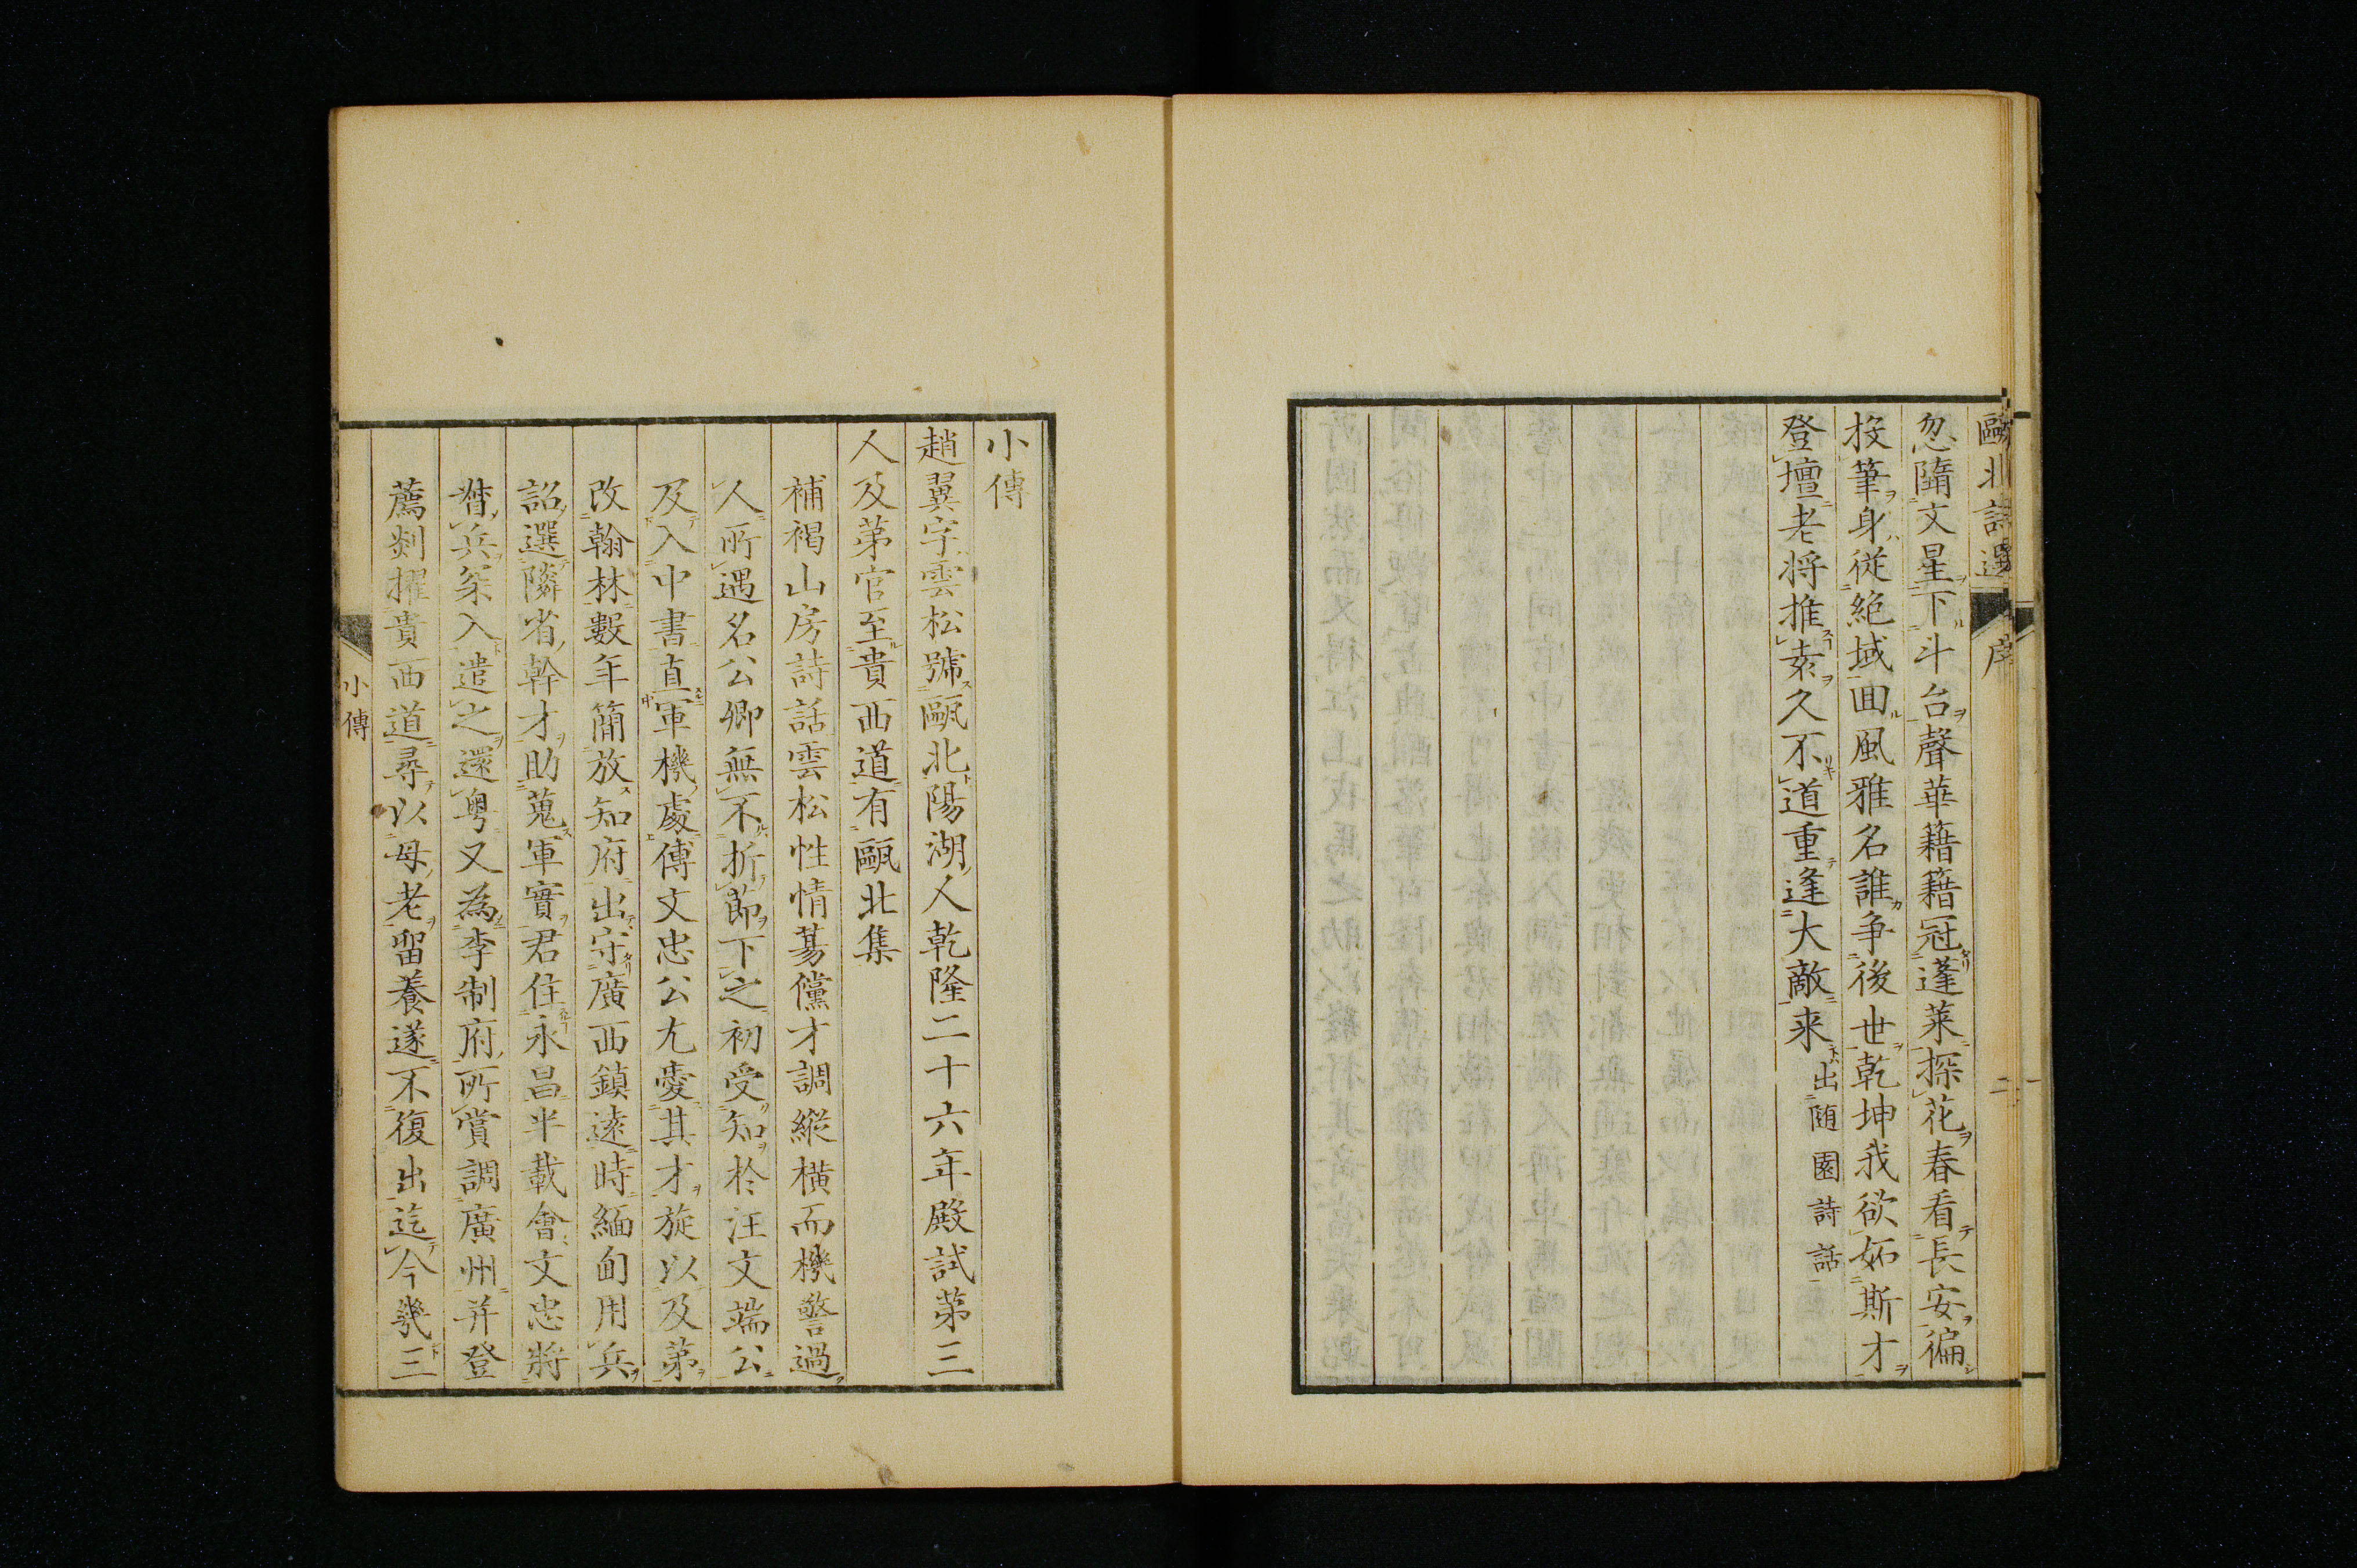 甌北詩選 序 二
忽隨文星下斗台聲華籍籍冠蓬莱探花春看長安徧
投筆身從絶域回風雅名誰争後世乾坤我欲妬斯才
登壇老将推袁久不道重逢大敵来 出随園詩話
小傳
趙翼字雲松號甌北陽湖人乾隆二十六年殿試第三
人及第官至貴西道有甌北集
補褐山房詩話雲松性情蕩儻才調縱横而機警過
人所遇名公卿無不折節下之初受知於汪文端公
及入中書直軍機處傅文忠公尤愛其才旋以及第
改翰林數年簡放知府出守廣西鎮遠時緬甸用兵
詔選隣省幹才助蒐軍實君住永昌半載會文忠將
督兵案入遣之還粤又為李制府所賞調廣州并登
薦剡擢貴西道尋以母老留養遂不復出迄今幾三
小傳